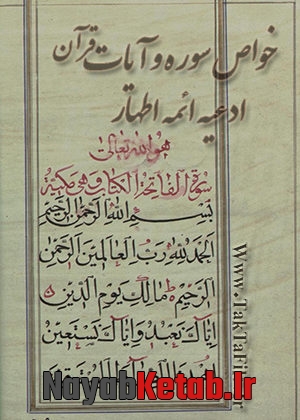 خواص سوره و آیات قرآن
ادعیه ائمه اطهار
هو الله تعالى
سورة الفاتحة الكتاب وهي مكية
بسم الله الرحمن الرحيم
الحمد لله رب العالمين الرحمن
الرحيم مالك يوم الدين
اياك نعبد واياك نستعين
www.TakTaFile.ir
NayabKetab.Ir